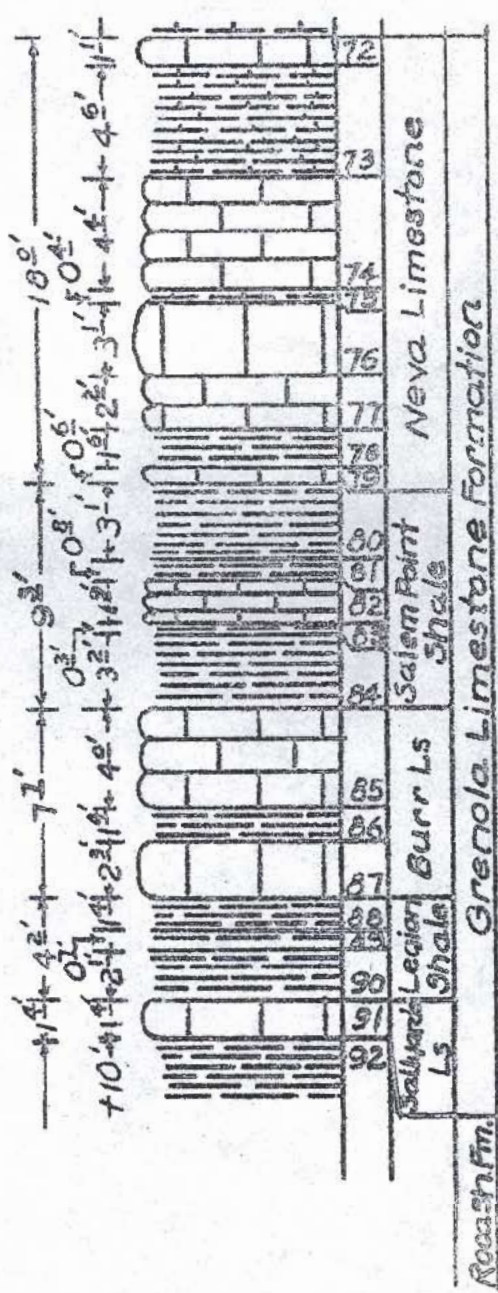 18 0'
9 3'
7 1'
4 2'
1 4'
1 1'
4 6'
4 4'
0 4'
3 1'
2 2'
1 6'
0 6'
3 1'
0 8'
3 2'
0 3'
4 0'
1 4'
2 2'
1 4'
2 1'
+10'
72
73
74
75
76
77
78
79
80
81
82
83
84
85
86
87
88
89
90
91
92
Neva Limestone
Salem Point
Shale
Burr Ls
Legion
Shale
Sallyards
Ls
Grenola Limestone Formation
Roca Sh. Fm.